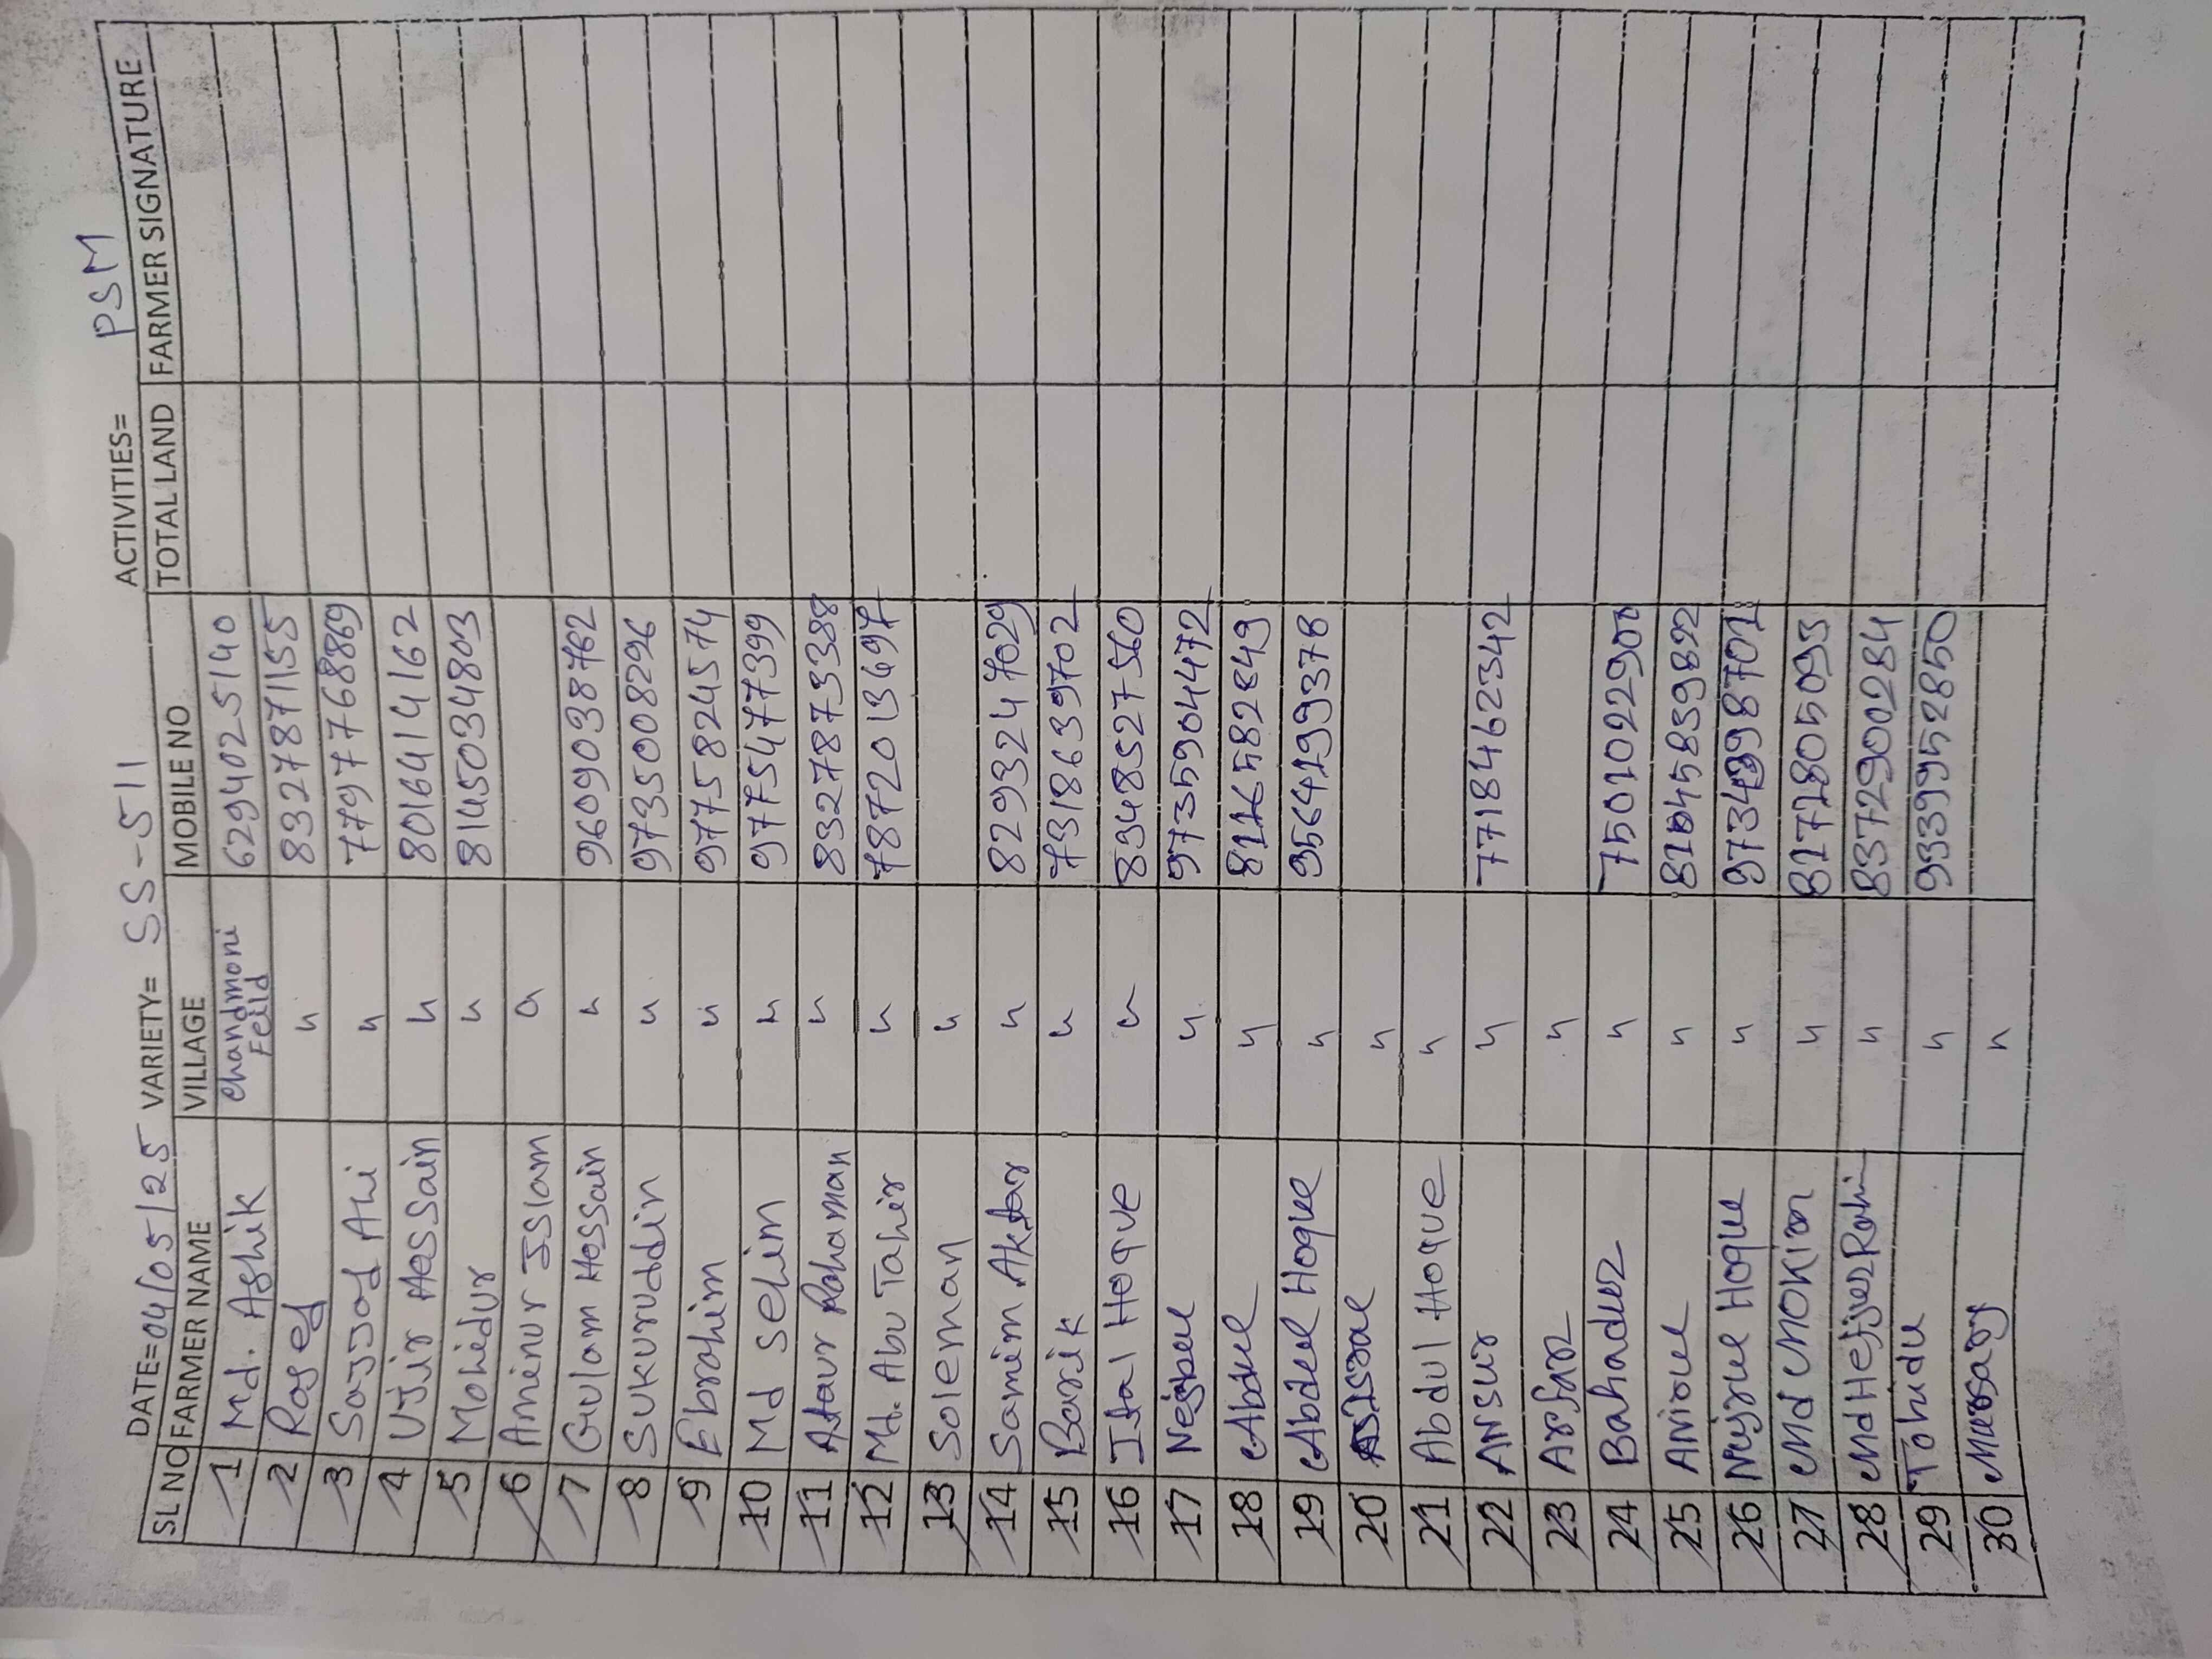 DATE=04/05/25 VARIETY= SS-511 ACTIVITIES= PSM
SL NO FARMER NAME VILLAGE MOBILE NO TOTAL LAND FARMER SIGNATURE
1 Md. Ashik Chandmoni Feild 6294025140
2 Rased 〃 8327871155
3 Sajjad Ali 〃 7797768869
4 Ujir Hossain 〃 8016414162
5 Mohidur 〃 8145034803
6 Aminur Islam 〃
7 Gulam Hossain 〃 9609038762
8 Sukuruddin 〃 9735008296
9 Ebrahim 〃 9775824574
10 Md Selim 〃 9775477399
11 Ataur Rahaman 〃 8327873388
12 Md. Abu Tahir 〃 7872013697
13 Soleman 〃
14 Samim Aktar 〃 8293247029
15 Barik 〃 7318639702
16 Ital Hoque 〃 8348527560
17 〃 9735904472
18 Abdul 〃 8116582849
19 Abdul Hoque 〃 9564199378
20 〃
21 Abdul Hoque 〃
22 Ansur 〃 7718462342
23 〃
24 Bahadur 〃 7501022900
25 〃
26 Hoque 〃
27 Md 〃 8172805093
28 Md 〃 8372900284
29 〃 9339952850
30 〃